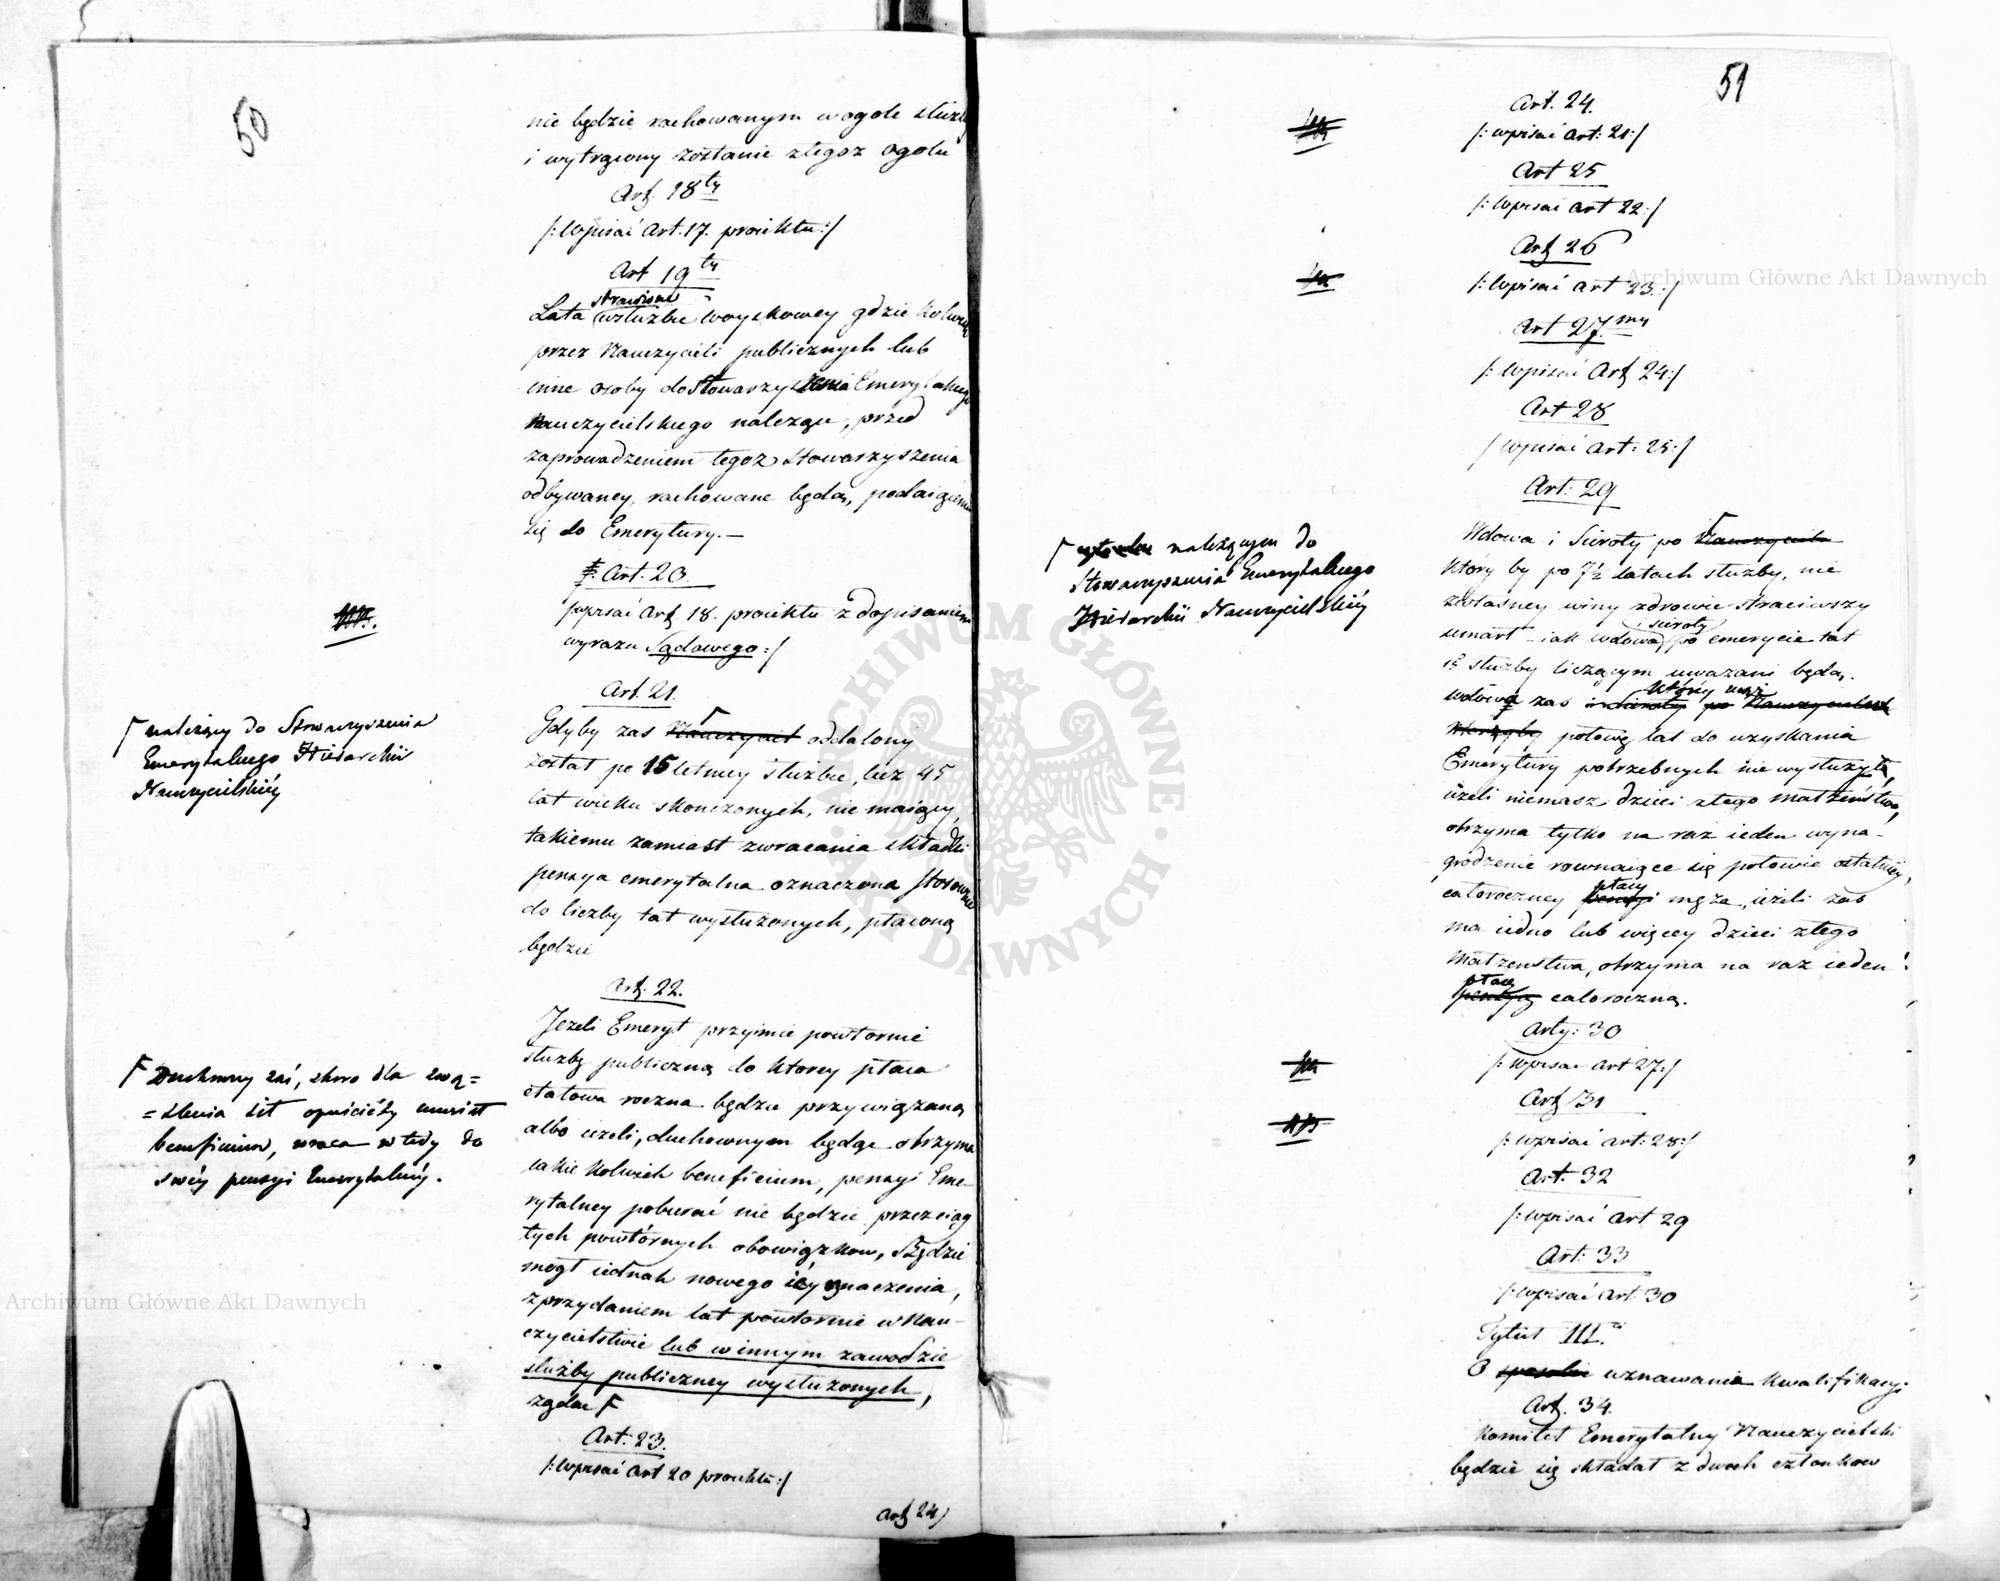 50
nie będzie rachowanym w ogole służby
i wytrącony zostanie z tegoż ogołu
Art. 18ty
/: Wpisać Art. 17. proiektu :/
Art 19ty
strawione
Lata w służbie woyskowey gdzie kolwiek
przez Nauczycieli publicznych lub
inne osoby do Stowarzyszenia Emerytalnego
Nauczycielskiego należące, przed
zaprowadzeniem tegoż Stowarzyszenia
odbywaney, rachowane będą, podaiącemu
się do Emerytury. —
Art. 20.
/wpisać Art. 18. proiektu z dopisaniem
wyrazu Sądowego :/
Art. 21.
Gdyby zas Nauczyciel oddalony
został po 15 letniey służbie, lecz 45
lat wieku skonczonych, nie maiący,
takiemu zamiast zwracania składki
pensya emerytalna oznaczona stosownie
do liczby lat wysłużonych, płaconą
będzie
Γ należący do Stowarzyszenia
Emerytalnego Hierarchii
Nauczycielskiéy
Art. 22.
Jeżeli Emeryt przyimie powtornie
służbę publiczną do ktorey płaca
etatowa roczna będzie przywiązaną
albo ieżeli, duchownym będąc otrzyma
iakie kolwiek beneficium, pensyi Eme-
rytalney pobierać nie będzie przez ciąg
tych powtórnych obowiązkow, Będzie
mogł iednak nowego iéy oznaczenia,
z przydaniem lat powtornie w Nau-
czycielstwie lub w innym zawodzie
służby publiczney wysłużonych,
żądać Γ
Γ Duchowny zaś, skoro dla zwą=
=tlenia sił opuściéby musiał
beneficium, wraca wtedy do
swéy pensyi Emerytalnéy.
Art. 23.
/: Wpisać Art 20 proiektu :/
Art 24/
51
Art. 24.
/: wpisać Art: 21 :/
Art 25
/: Wpisać Art 22 :/
Art 26
/: Wpisać Art 23. :/
Art 27.my
/: Wpisać Art 24 :/
Art 28
/ Wpisać Art: 25 :/
Art: 29
Wdowa i Sieroty po Nauczycielu
Który by po 7½ latach służby, nie
z własney winy zdrowie straciwszy
i sieroty
umarł – iak wdowa, po emerycie lat
15 służby liczącym uważani będą.
Który mąż
wdowa zas i sieroty po Nauczycielach
ktorzyby połowę lat do uzyskania
Emerytury potrzebnych nie wysłużył,
ieżeli niemasz dzieci z tego małżeństwa,
otrzyma tylko na raz ieden wyna-
grodzenie rownaiące się połowie ostatniéy,
płacy
całoroczney pensyi męża, ieżeli zas
ma iedno lub więcey dzieci z tego
małżenstwa, otrzyma na raz ieden
płacę
pensyą całoroczną.
Γ należącym do
Stowarzyszenia Emerytalnego
Hierarchii Nauczycielskiéy
Arty: 30
/: Wpisać Art 27 :/
Art 31
/: Wpisać Art: 28 :/
Art. 32
/: Wpisać Art 29
Art: 33
/: Wpisać Art: 30
Tytuł III.
O sposobie uznawania kwalifikacyi
Art. 34.
Komitet Emerytalny Nauczycielski
będzie się składał z dwoch członkow
Archiwum Główne Akt Dawnych
Archiwum Główne Akt Dawnych
ARCHIWUM GŁÓWNE AKT DAWNYCH